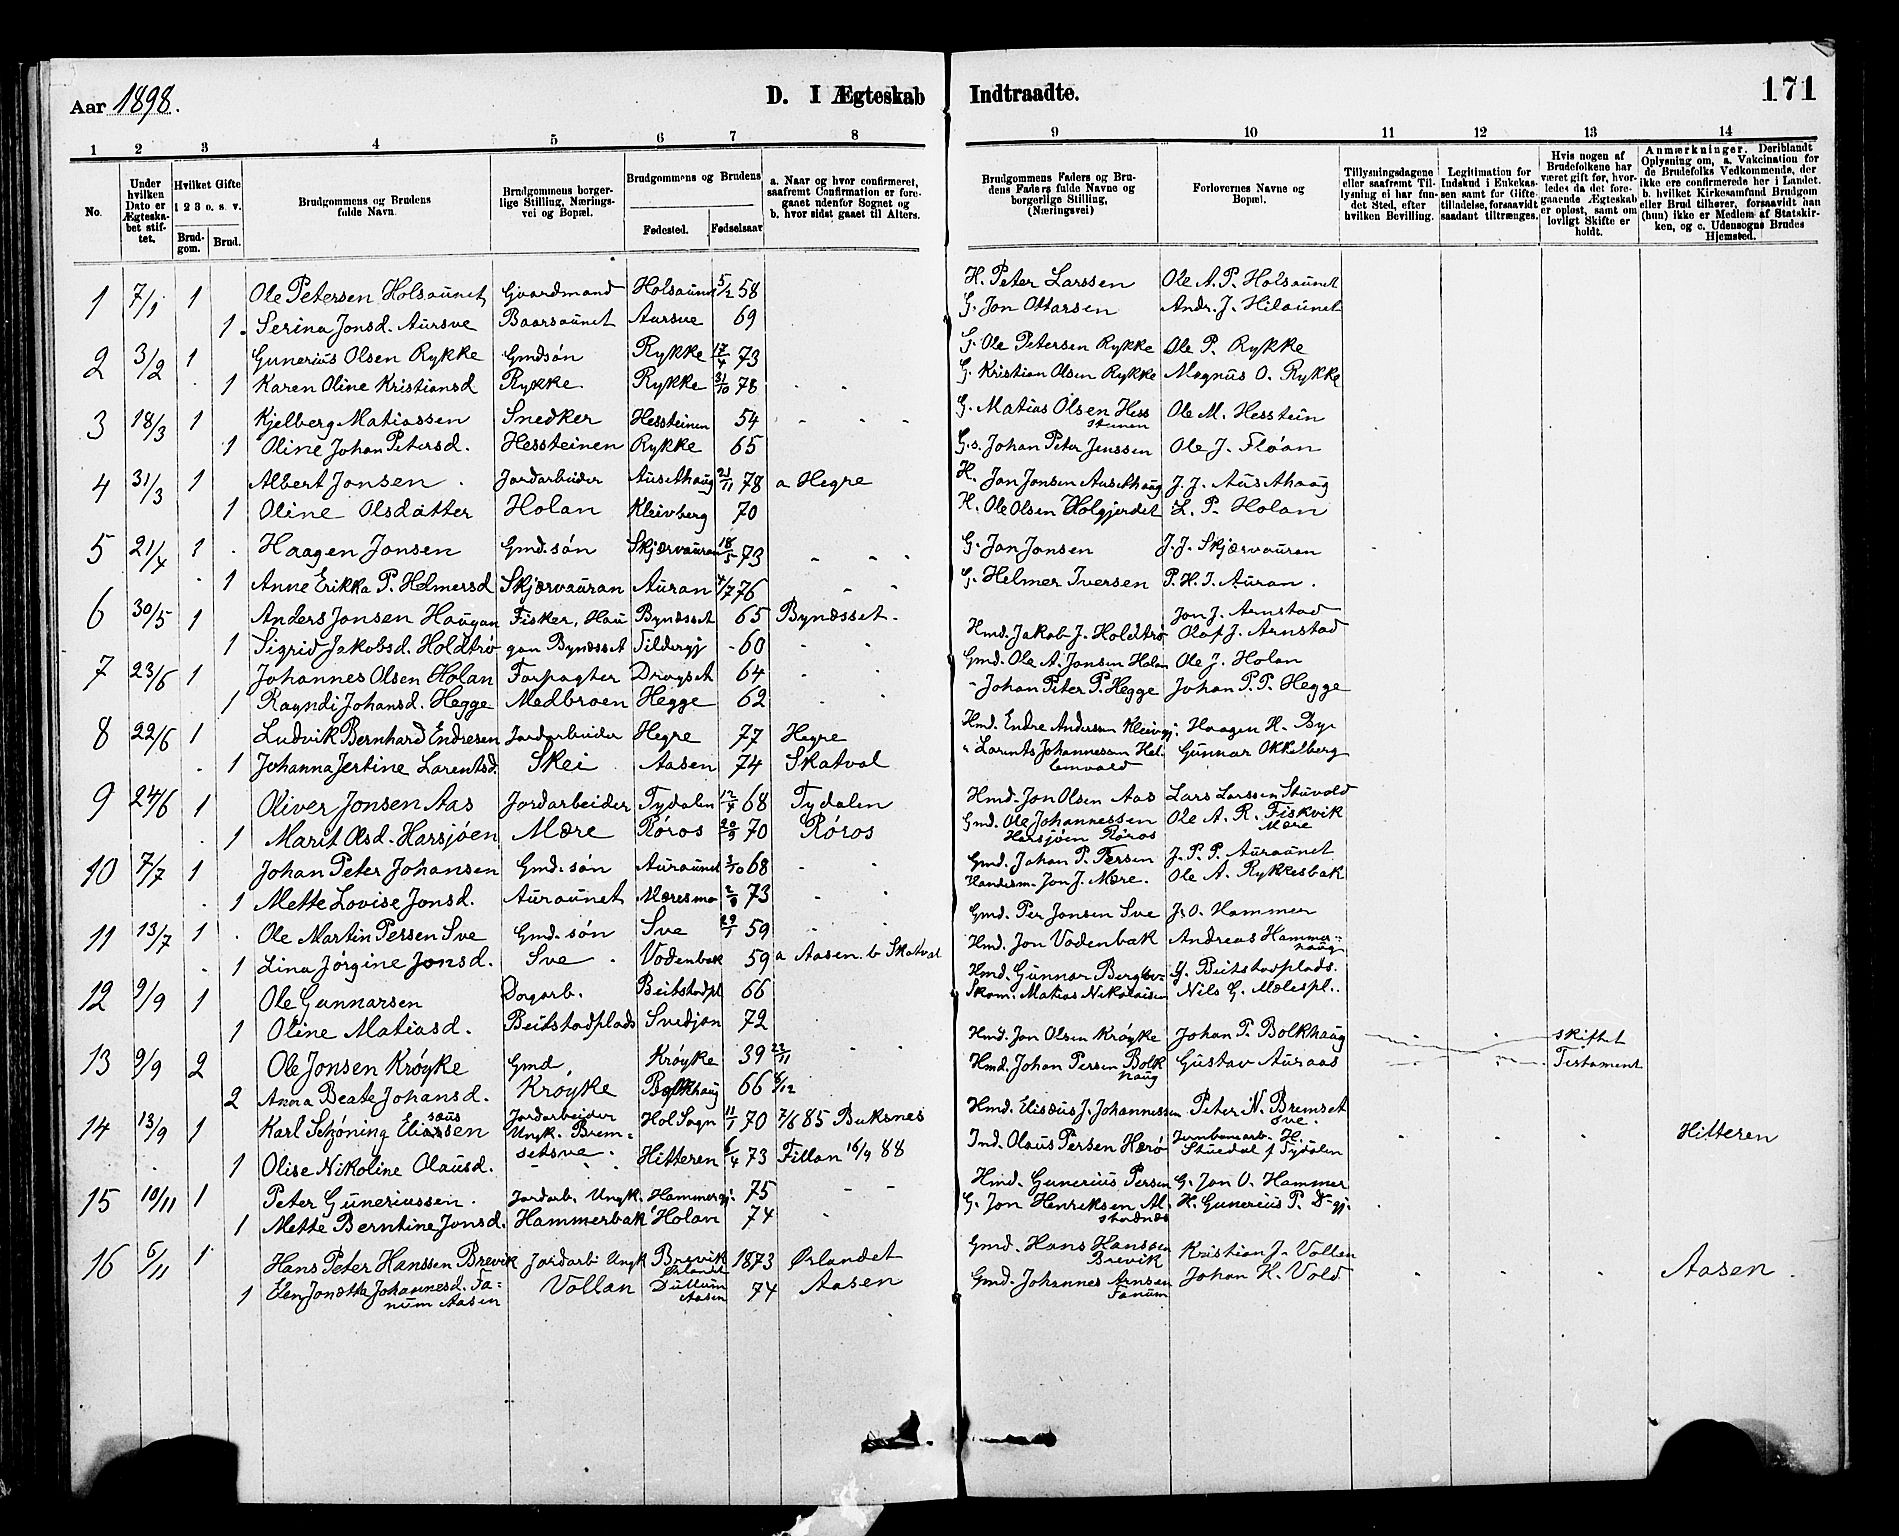 Aar 1898.
D. I Ægteskab Indtraadte.
171
1 2 3 4 5 6 7 8 9 10 11 12 13 14
No.
Under hvilken Dato er Ægteskabet stiftet.
Hvilket Gifte 1 2 3 o. s. v.
Brudgom. Brud.
Brudgommens og Brudens fulde Navn.
Brudgommens borgerlige Stilling, Næringsvei og Bopæl.
Brudgommens og Brudens
Fødested. Fødselsaar
a. Naar og hvor confirmeret, saafremt Confirmation er foregaaet udenfor Sognet og b. hvor sidst gaaet til Alters.
Brudgommens Faders og Brudens Faders fulde Navne og borgerlige Stilling, (Næringsvei)
Forlovernes Navne og Bopæl.
Tillysningsdagene eller saafremt Tillysning ei har fundet Sted, efter hvilken Bevilling.
Legitimation for Indskud i Enkekassen samt for Giftetilladelse, forsaavidt saadant tiltrænges.
Hvis nogen af Brudefolkene har været gift før, hvorledes da det foregaaende Ægteskab er opløst, samt om lovligt Skifte er holdt.
Anmærkninger. Deriblandt Oplysning om, a. Vakcination for de Brudefolks Vedkommende, der ikke ere confirmerede her i Landet. b. hvilket Kirkesamfund Brudgom eller Brud tilhører, forsaavidt han (hun) ikke er Medlem af Statskirken, og c. Udensogns Brudes Hjemsted.
1 7/1 1 Ole Petersen Holsaunet Gaardmand Holsaunet 5/2 58 H. Peter Larssen Ole A. P. Holsaunet
1. Serina Jonsd. Aursve Baarsaunet Aursve 69 G. Jon Ottarsen Andr. J. Hilaunet
2 3/2 1 Gunerius Olsen Rykke Gmdsøn Rykke 17/4 73 G. Ole Petersen Rykke Ole P. Rykke
1 Karen Oline Kristiansd Rykke Rykke 31/10 78 G. Kristian Olsen Rykke Magnus O. Rykke
3 18/3 1 Kjelberg Matiassen Snedker Hessteinen 54 G. Matias Olsen Hessteinen Ole M. Hesstein
1 Oline Johan Petersd. Hessteinen Rykke 65 G.s. Johan Peter Jenssen Ole J. Fløan
4 31/3 1 Albert Jonsen Jordarbeider Ausethaug 21/11 78 a Hegre H. Jon Jonsen Ausethaug J. J. Austhaug
1 Oline Olsdatter Holan Kleivberg 70 H. Ole Olsen Holgjerdet L. P. Holan
5 21/4 1 Haagen Jonsen Gmd. søn Skjærvauran 18/5 73 G. Jon Jonsen J. J. Skjærvauran
1 Anne Erikka P. Helmersd Skjærvauran Auran 4/7 76 G. Helmer Iversen P. H. I. Auran.
6 30/5 1 Anders Jonsen Haugan Fisker, Hau Bynæsset 65 Bynæsset. Jon J. Arnstad
1 Sigrid Jakobsd. Holdtrø gan Bynæsset Tildergj 60 Hmd. Jakob J. Holdtrø Olaf J. Arnstad
7 23/6 1 Johannes Olsen Holan Forpagter Drogset 64 Gmd. Ole A. Jonsen Holan Ole J. Holan
1 Ragndi Johansd. Hegge Medbroen Hegge 62 Johan Peter P. Hegge Johan P. P. Hegge
8 22/6 1 Ludvik Bernhard Endresen Jordarbeider Hegre 77 Hegre Hmd. Endre Anderssen Kleivgj. Haagen H. Bye
1 Johanna Jertine Larentsd. Skei Aasen 74 Skatval Larents Johannessen Hellemvald Gunnar Okkelberg
9 24/6 1 Oliver Jonsen Aas Jordarbeider Tydalen 12/4 68 Tydalen Hmd. Jon Olsen Aas Lars Larssen Stuvold
1 Marit Olsd. Harsjøen Mære Røros 20/9 70 Røros Gmd. Ole Johannessen Harsjøen Røros Ole A. R. Fiskvik Mære
10 7/7 1 Johan Peter Johansen Gmd. søn Auraunet 3/10 68 Gmd. Johan P. Persen J. P. P. Auraunet
1 Mette Lovise Jonsd. Auraunet Mæresmo 73 Handesm. Jon J. Mære. Ole A. Rykkesbak
11 13/7 1 Ole Martin Persen Sve Gmd. søn Sve 29/1 59 Gmd. Per Jonsen Sve J. O. Hammer
1 Lina Jørgine Jonsd. Sve Vodenbak 59 a Aasen. b Skatval Hmd. Jon Vodenbak Andreas Hammerhaug
12 9/9 1 Ole Gunnarsen Dagarb. Beitstadpl 66 Hmd. Gunnar G. Beitstadplads.
1 Oline Matiasd. Beitstadplads Svedjan 72 Skom. Matias Nikolaisen Nils G. Mælespl.
13 9/9 2 Ole Jonsen Krøyke Gmd. Krøyke 39 22/11 Hmd. Jon Olsen Krøyke Johan P. Bolkhaug skiftet
2 Anna Beate Johansd. Krøyke Bolkhaug 66 6/12 Hmd. Johan Persen Bolkhaug Gustav Auraas Testament
14 13/9 1 Karl Schøning Eliasen Jordarbeider Ungk. Bremsetsve. Hol Sogn 11/1 70 7/6 85 Buksnes Hmd. Elisæus J. Johannessen Peter N. Bremset Sve.
1 Olise Nikoline Olausd. Hitteren 6/4 73 Fillan 16/9 88 Ind. Olaus Persen Hærø Jernbanearb. H. Stuedal f Tydalen Hitteren
15 10/11 1 Peter Guneriussen. Jordarb. Ungk. Hammergj. 75 Hmd. Gunerius Persen G. Jon O. Hammer
1 Mette Berntine Jonsd. Hammerbak Holan 74 G. Jon Henriksen Alstadnes H. Gunerius P.
16 6/11 1 Hans Peter Hanssen Brevik Jordarb Ungk Brevik Ørlandet 1873 Ørlandet Gmd. Hans Hansen Brevik Kristian J. Vollan
1 Jonetta Johannesd. Fanum Aasen Vollan Dullum Aasen 74 Aasen Gmd. Johannes Arnsen Fanum Johan H. Vold Aasen.